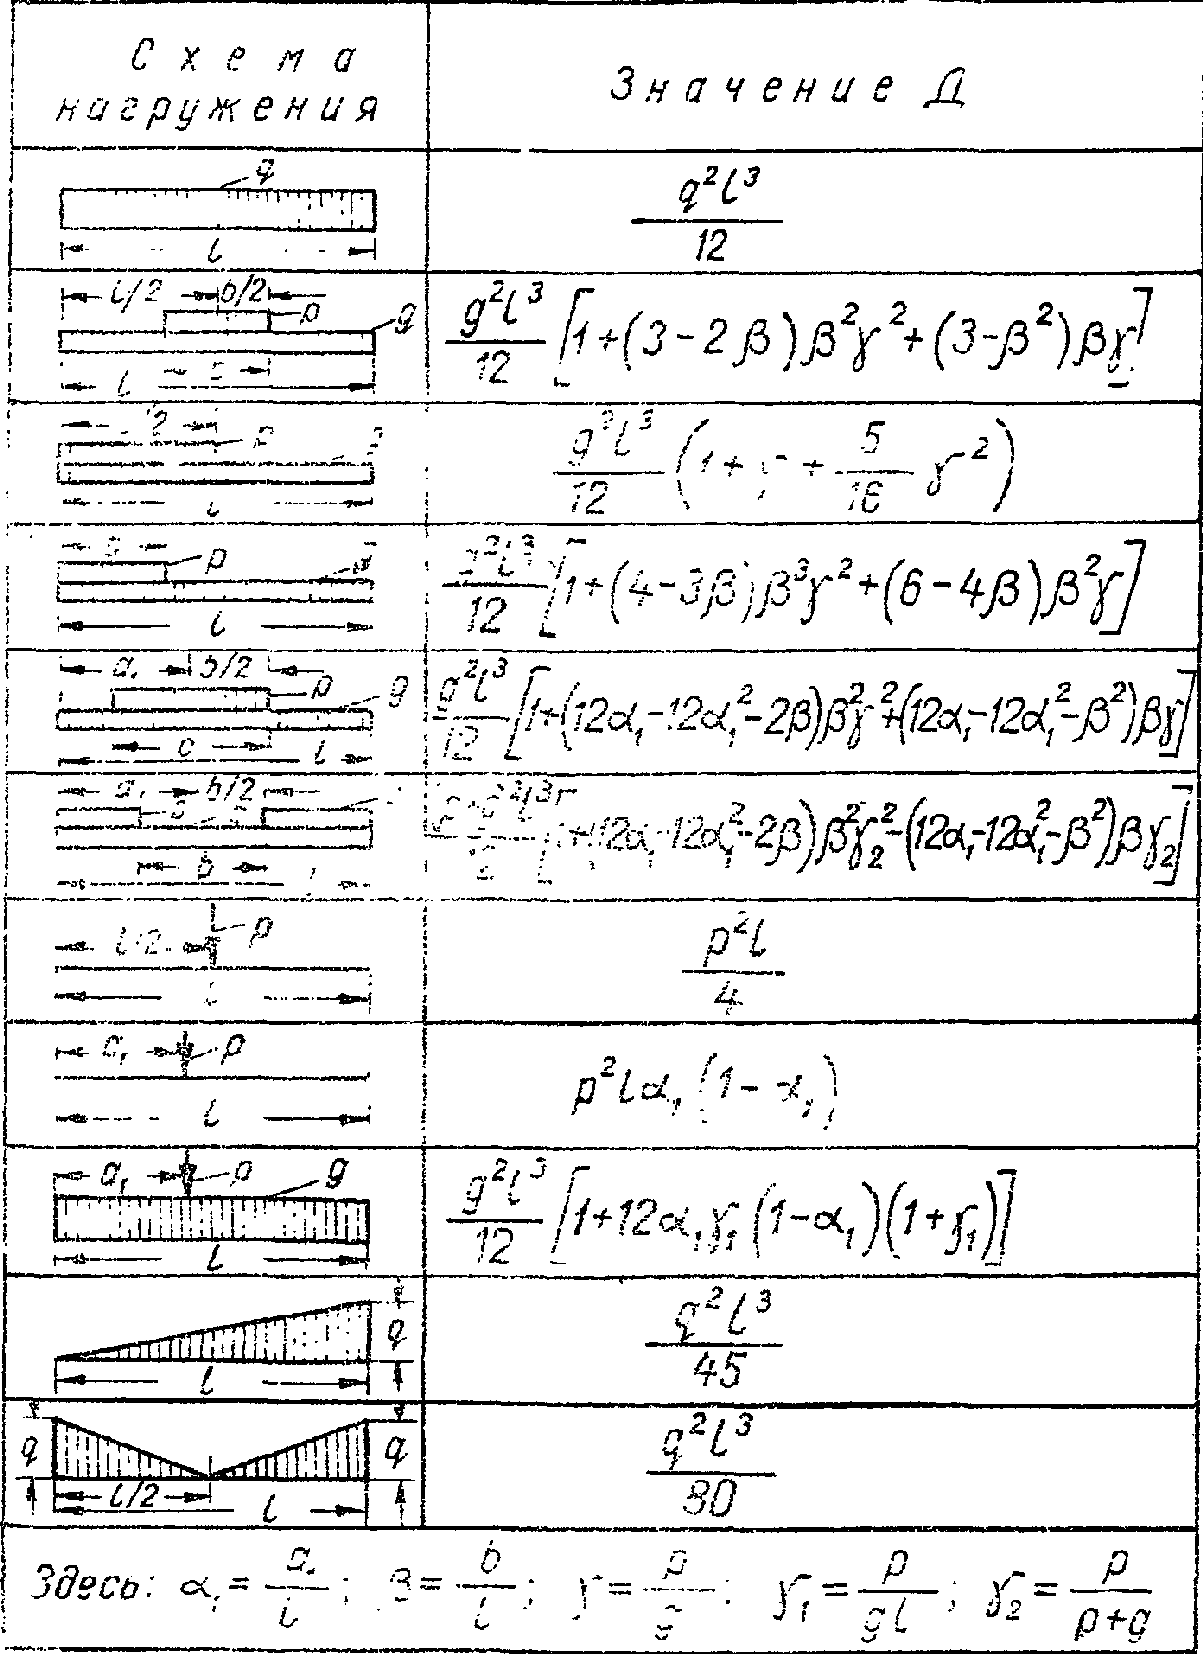 Схема
нагружения
Значение Д
q
l
q²l³/12
l/2 b/2
p g
l
g²l³/12 [1+(3-2β)β²γ²+(3-β²)βγ]
g²l³/12 (1+ + 5/16 γ²)
p
l
g²l³/12 [1+(4-3β)β³γ²+(6-4β)β²γ]
a₁ b/2
p g
l
g²l³/12 [1+(12α₁-12α₁²-2β)β²γ²+(12α₁-12α₁²-β²)βγ]
a₁ b/2
b
12α₁-12α₁²-2β)β²γ₂²-(12α₁-12α₁²-β²)βγ₂]
l/2 p
p²l/4
p
l
p²lα₁(1-α₁)
a₁ p g
l
g²l³/12 [1+12α₁γ₁(1-α₁)(1+γ₁)]
q
l
q²l³/45
q q
l/2 l
q²l³/80
Здесь: α₁ = a₁/l ; β = b/l ; γ = p/g ; γ₁ = p/gl ; γ₂ = p/p+g